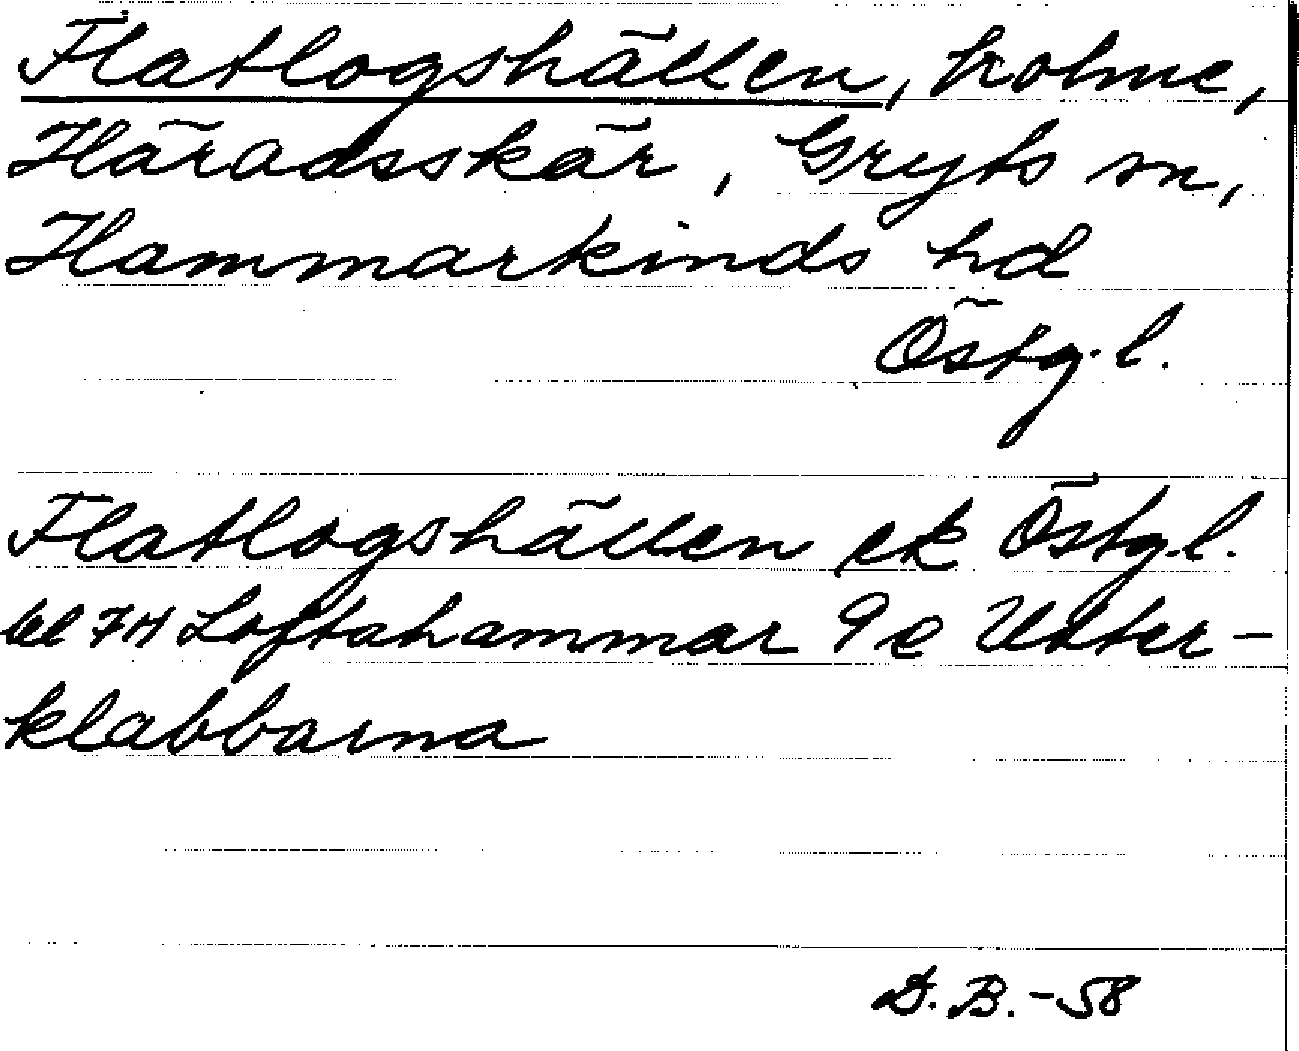 Flatlogshällen, holme,
Häradsskär, Gryts sn,
Hammarkinds hd
Östg. l.
Flatlogshällen ek Östg.l.
bl 7H Loftahammar 9e Utter-
klabbarna
D.B.-58